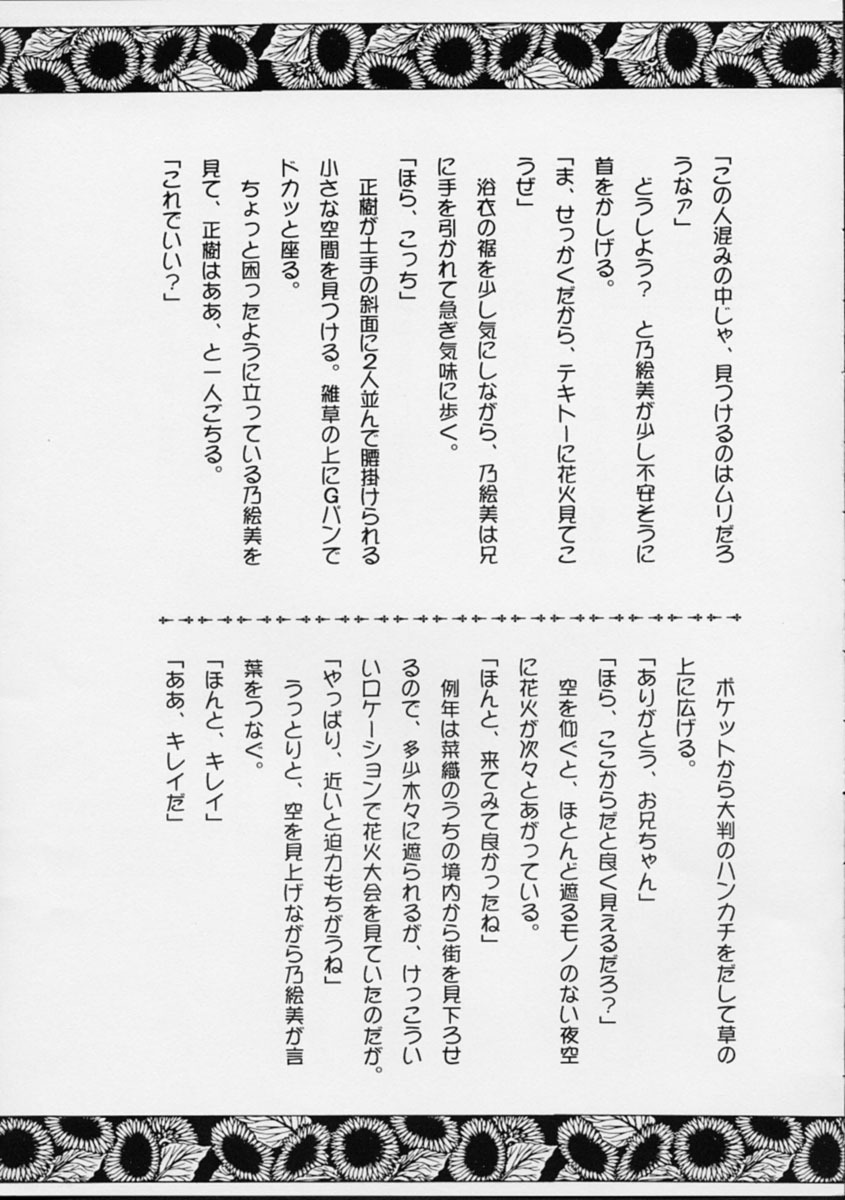 「この人混みの中じゃ、見つけるのはムリだろ
うなァ」
どうしよう？　と乃絵美が少し不安そうに
首をかしげる。
「ま、せっかくだから、テキトーに花火見てこ
うぜ」
浴衣の裾を少し気にしながら、乃絵美は兄
に手を引かれて急ぎ気味に歩く。
「ほら、こっち」
正樹が土手の斜面に２人並んで腰掛けられる
小さな空間を見つける。雑草の上にＧパンで
ドカッと座る。
ちょっと困ったように立っている乃絵美を
見て、正樹はああ、と一人ごちる。
「これでいい？」
ポケットから大判のハンカチをだして草の
上に広げる。
「ありがとう、お兄ちゃん」
「ほら、ここからだと良く見えるだろ？」
空を仰ぐと、ほとんど遮るモノのない夜空
に花火が次々とあがっている。
「ほんと、来てみて良かったね」
例年は菜織のうちの境内から街を見下ろせ
るので、多少木々に遮られるが、けっこうい
いロケーションで花火大会を見ていたのだが。
「やっぱり、近いと迫力もちがうね」
うっとりと、空を見上げながら乃絵美が言
葉をつなぐ。
「ほんと、キレイ」
「ああ、キレイだ」